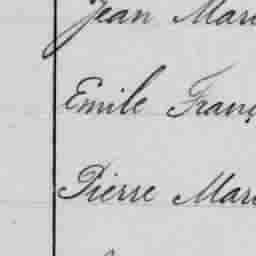 Jean Mari
Emile Franç
Pierre Mari